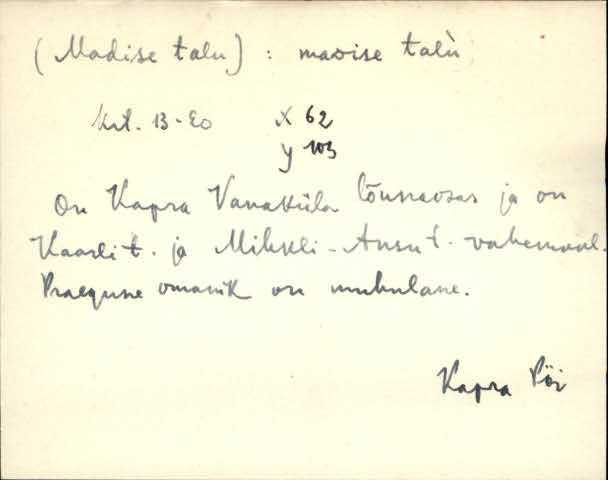 (Madise talu) : maδise talù
krt. 13-20 X 62
y 103
On Kapra Vanaküla lõunaosas ja on
Kaarli t. ja Mihkli-Ansu t. vahemaal.
Praegune omanik on muhulane.
Kapra Pöi